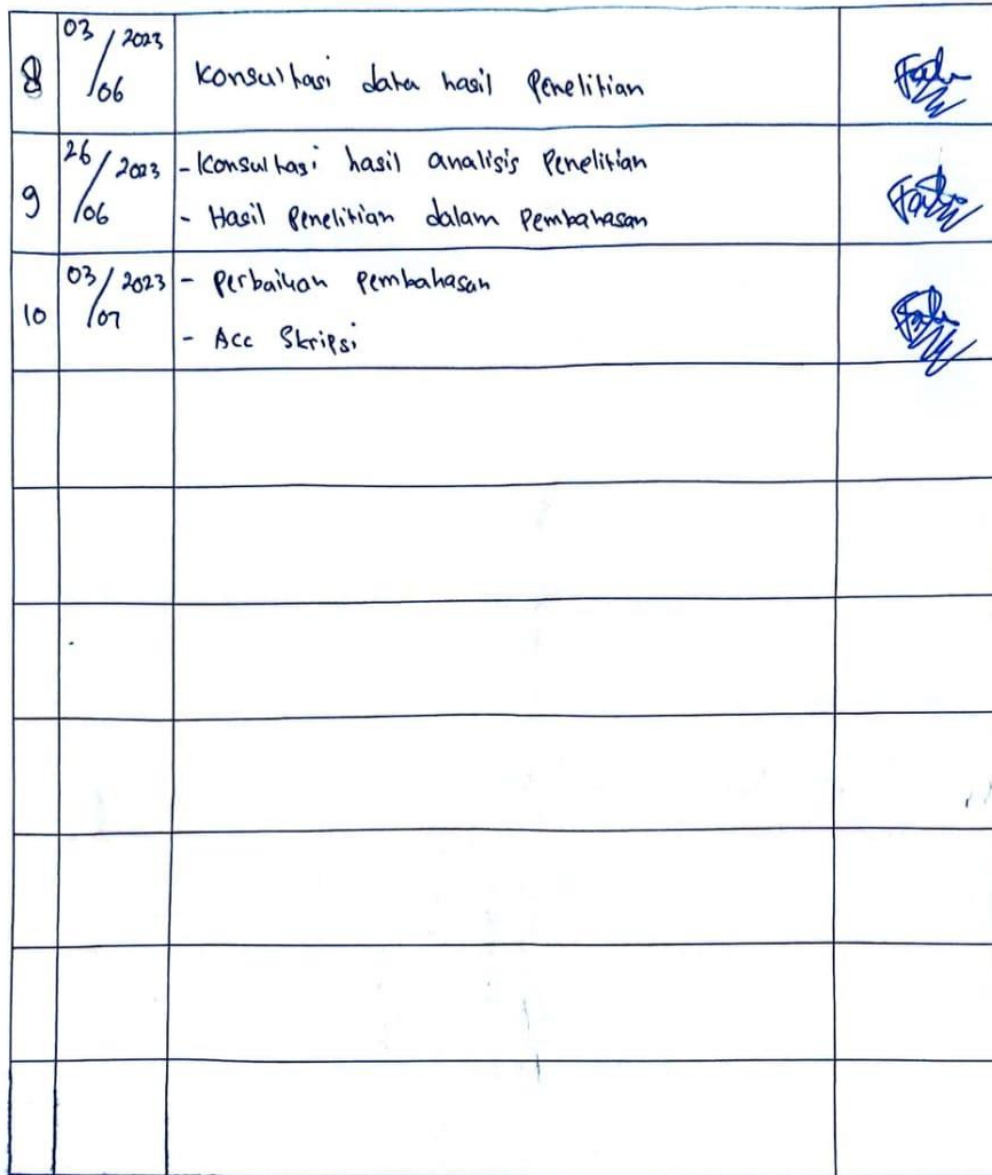 8 03/06 2023 Konsultasi data hasil Penelitian
9 26/06 2023 - Konsultasi hasil analisis Penelitian
- Hasil Penelitian dalam Pembahasan
10 03/07 2023 - Perbaikan Pembahasan
- Acc Skripsi